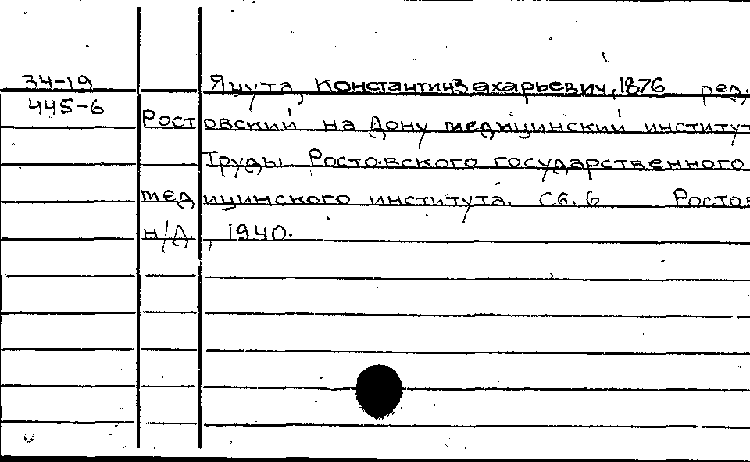 34-19 Яцута, Константин Захарьевич, 1876 ред.
445-6
Ростовский на Дону медицинский институт
Труды Ростовского государственного
медицинского института. Сб. 6 Ростов
н/Д, 1940.